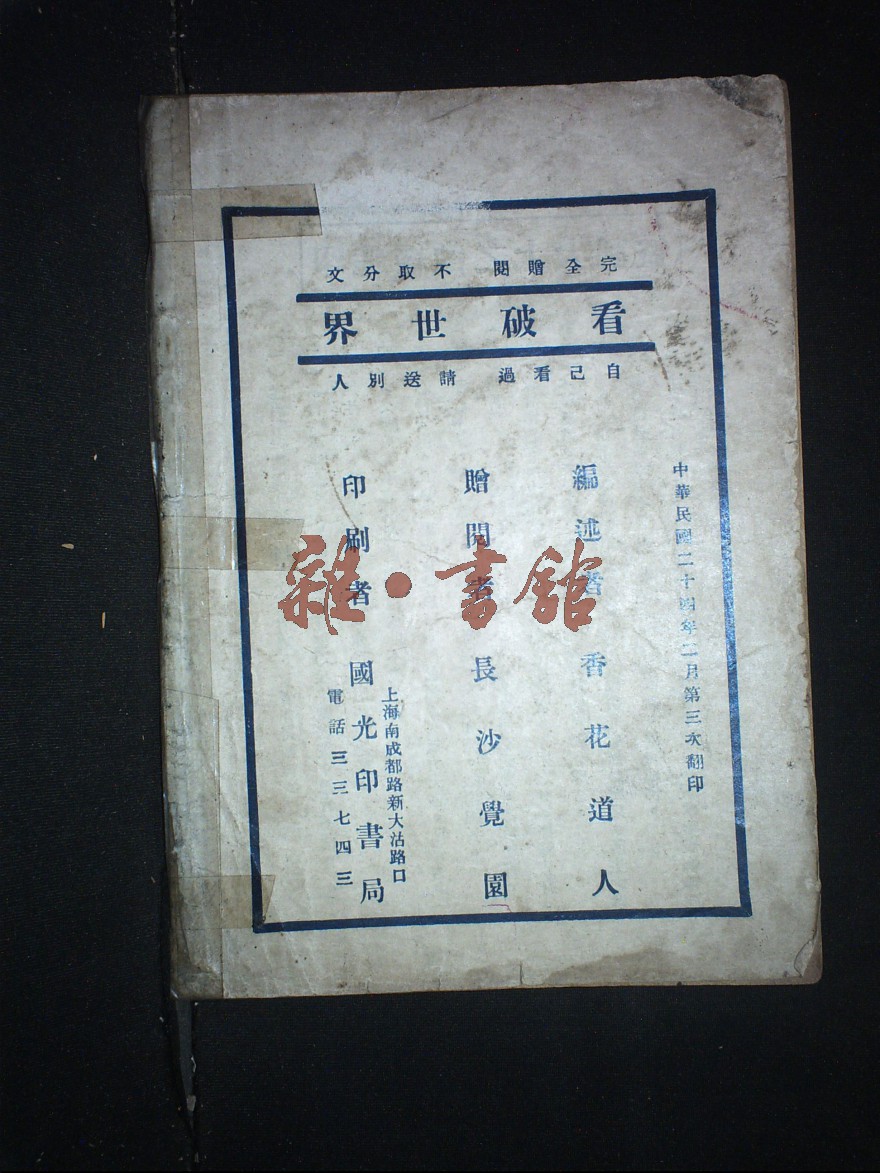 完全贈閱 不取分文
看破世界
自己看過 請送別人
中華民國二十四年二月第三次翻印
編述者 香花道人
贈閱者 長沙覺園
印刷者 國光印書局
上海南成都路新大沽路口
電話三三七四三
雜·書館